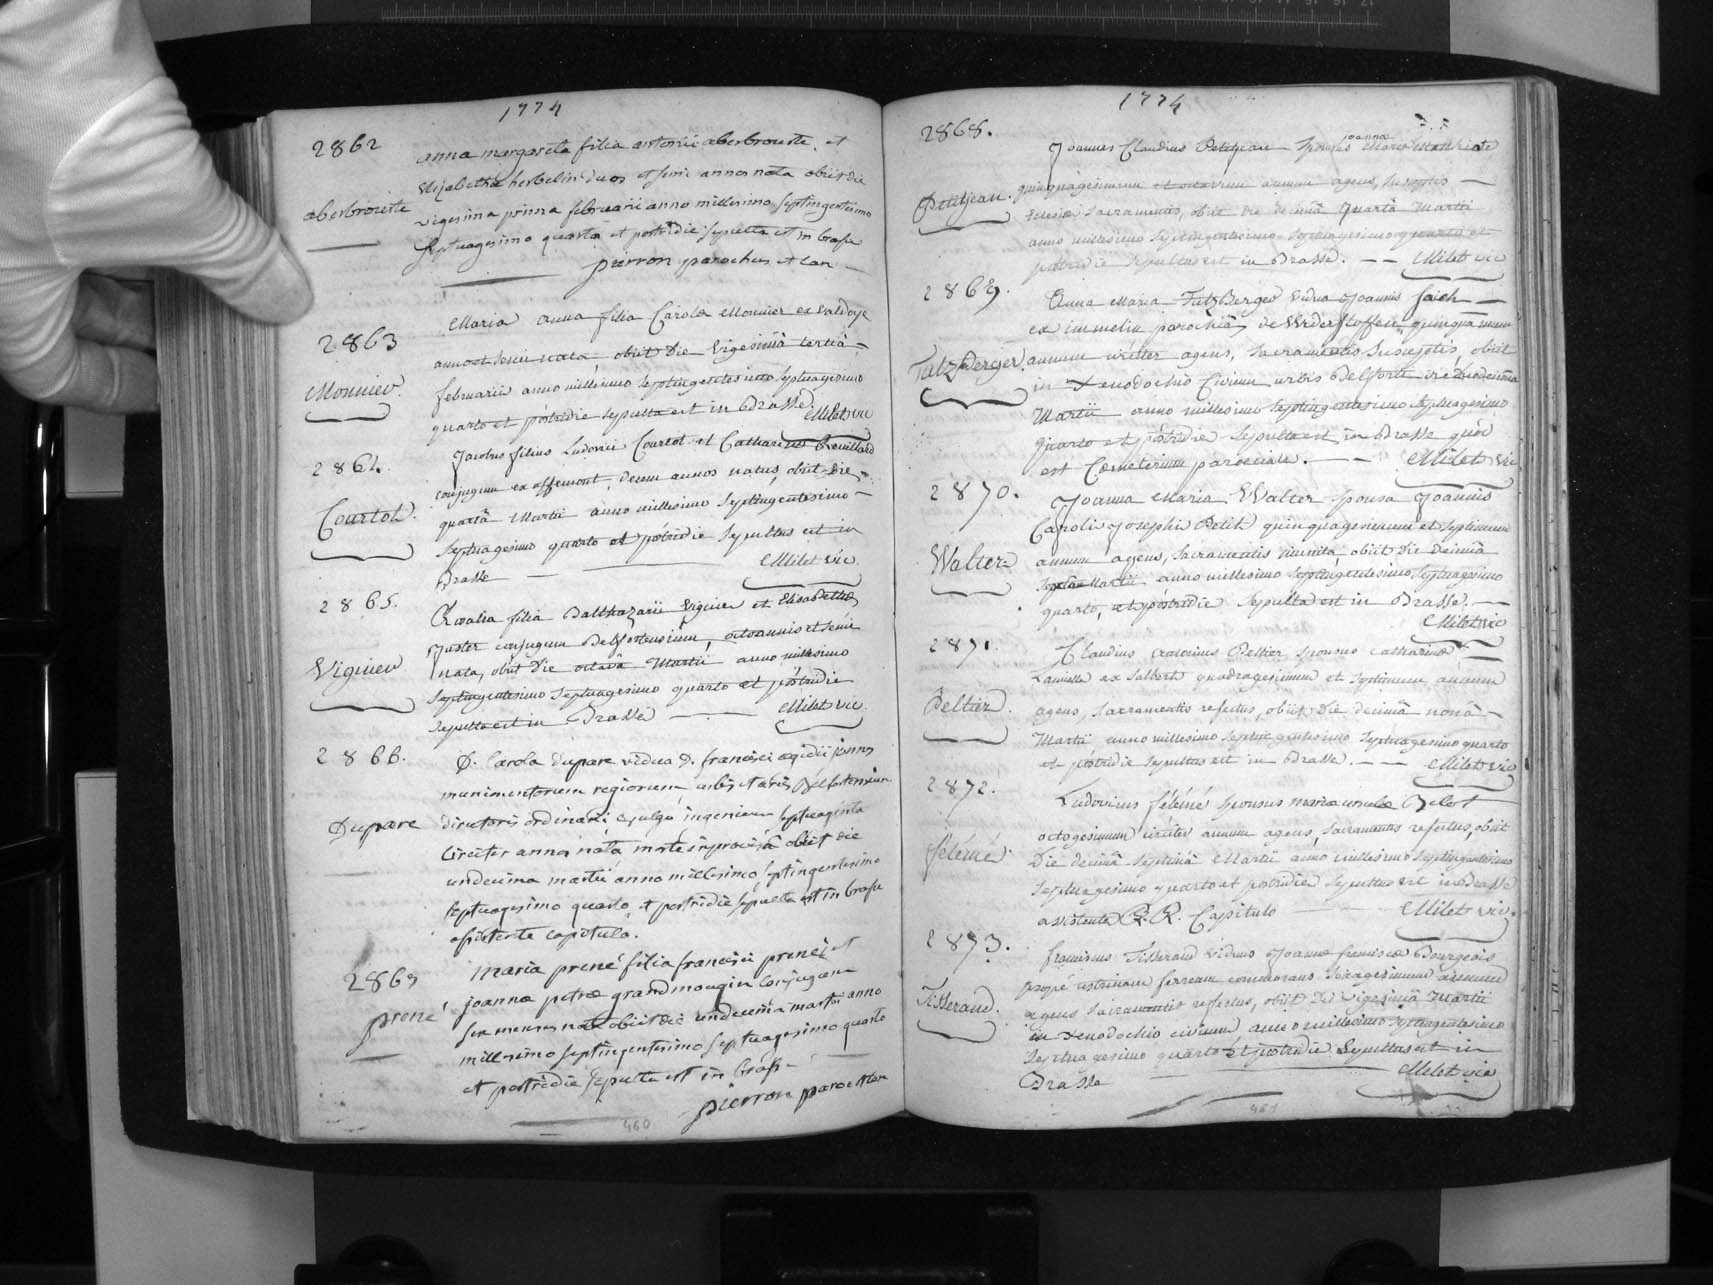 1774
2862
anna margareta filia antonii aberbrouste, et
Elizabetha herbelin duos et semi annos nata obiit die
aberbrouste
vigesima prima februarii anno millesimo septingentesimo
septuagesimo quarto et postridie sepulta est in brasse
pierron parochus et can
2863
Maria anna filia Caroli Monnier ex valdoye
anno et semi nata obiit Die vigesimâ tertiâ
Monnier.
februarii anno millesimo septingentesimo septuagesimo
quarto et postridie sepulta est in Brasse. Milet vic
2864.
Jacobus filius Ludovici Courtot et Catharinæ Rouillard
conjugum ex offemont, decem annos natus obiit Die
Courtot.
quartâ Martii anno millesimo septingentesimo
septuagesimo quarto et postridie sepultus est in
Brasse Milet vic
2865.
Rosalia filia Balthazarii Viguier et Elisabethæ
juster conjugum Belfortensium, octo annis et semi
Viguier
nata, obiit Die octavâ Martii anno millesimo
septingentesimo septuagesimo quarto et postridie
sepulta est in Brasse Milet vic.
2866.
D. Carola dupare vidua D. francisci ægidii
munimentorum regiorum urbis et arcis Belfortensium
Dupare
ordinarii vulgo ingenieur septuaginta
circiter annos nata morte improvisâ obiit die
undecima martii anno millesimo septingentesimo
septuagesimo quarto et postridie sepulta est in brasse
assistente capitulo.
2867
maria prené filia francisci prené et
joannæ petræ grandmougin conjugum
prené
sex menses nata obiit die undecimâ martii anno
millesimo septingentesimo septuagesimo quarto
et postridie sepulta est in brasse
pierron paroc et can
460
1774
2868.
joannæ
Joannes Claudius Petitjean sponsus Mariæ
Petitjean.
quinquagesimum et octavum annum agens, susceptis
Eclesiæ sacramentis, obiit die decimâ quartâ Martii
anno millesimo septingentesimo septuagesimo quarto et
postridie sepultus est in Brasse. Milet vic
2869.
Anna Maria Tulzberger vidua Joannis faich
ex immelin parochiâ de
Tulzberger.
annum circiter agens, sacramentis susceptis, obiit
in Xenodochio Civium urbis Belforti die duodecimâ
Martii anno millesimo septingentesimo septuagesimo
quarto et postridie sepulta est in Brasse quod
est Cœmeterium parociale. Milet vic
2870.
Joanna Maria Walter sponsa Joannis
Caroli Josephi Petit quinquagesimum et septimum
Walter
annum agens, sacramentis munita obiit Die Decimâ
sextâ Martii anno millesimo septingentesimo septuagesimo
quarto, et postridie sepulta est in Brasse.
Milet vic
2871.
Claudius Antonius Peltier sponsus catharinæ
Lamielle ex salbert quadragesimum et septimum annum
Peltier.
agens, sacramentis refectus, obiit Die decimâ nonâ
Martii anno millesimo septingentesimo septuagesimo quarto
et postridie sepultus est in Brasse. Milet vic
2872.
Ludovicus féléné sponsus mariæ ursulæ Belot
octogesimum circiter annum agens, sacramentis refectus, obiit
féléné.
Die decimâ septimâ Martii anno millesimo septingentesimo
septuagesimo quarto et postridie sepultus est in Brasse
assistente R. R. Capitulo Milet vic.
2873.
franciscus Tisserand viduus Joannæ franciscæ Bourgeois
propè ustrinam ferream commorans sexagesimum annum
Tisserand.
agens sacramentis refectus, obiit Die vigesimâ Martii
in xenodochio civium anno millesimo septingentesimo
septuagesimo quarto et postridie sepultus est in
Brasse Milet vic
461